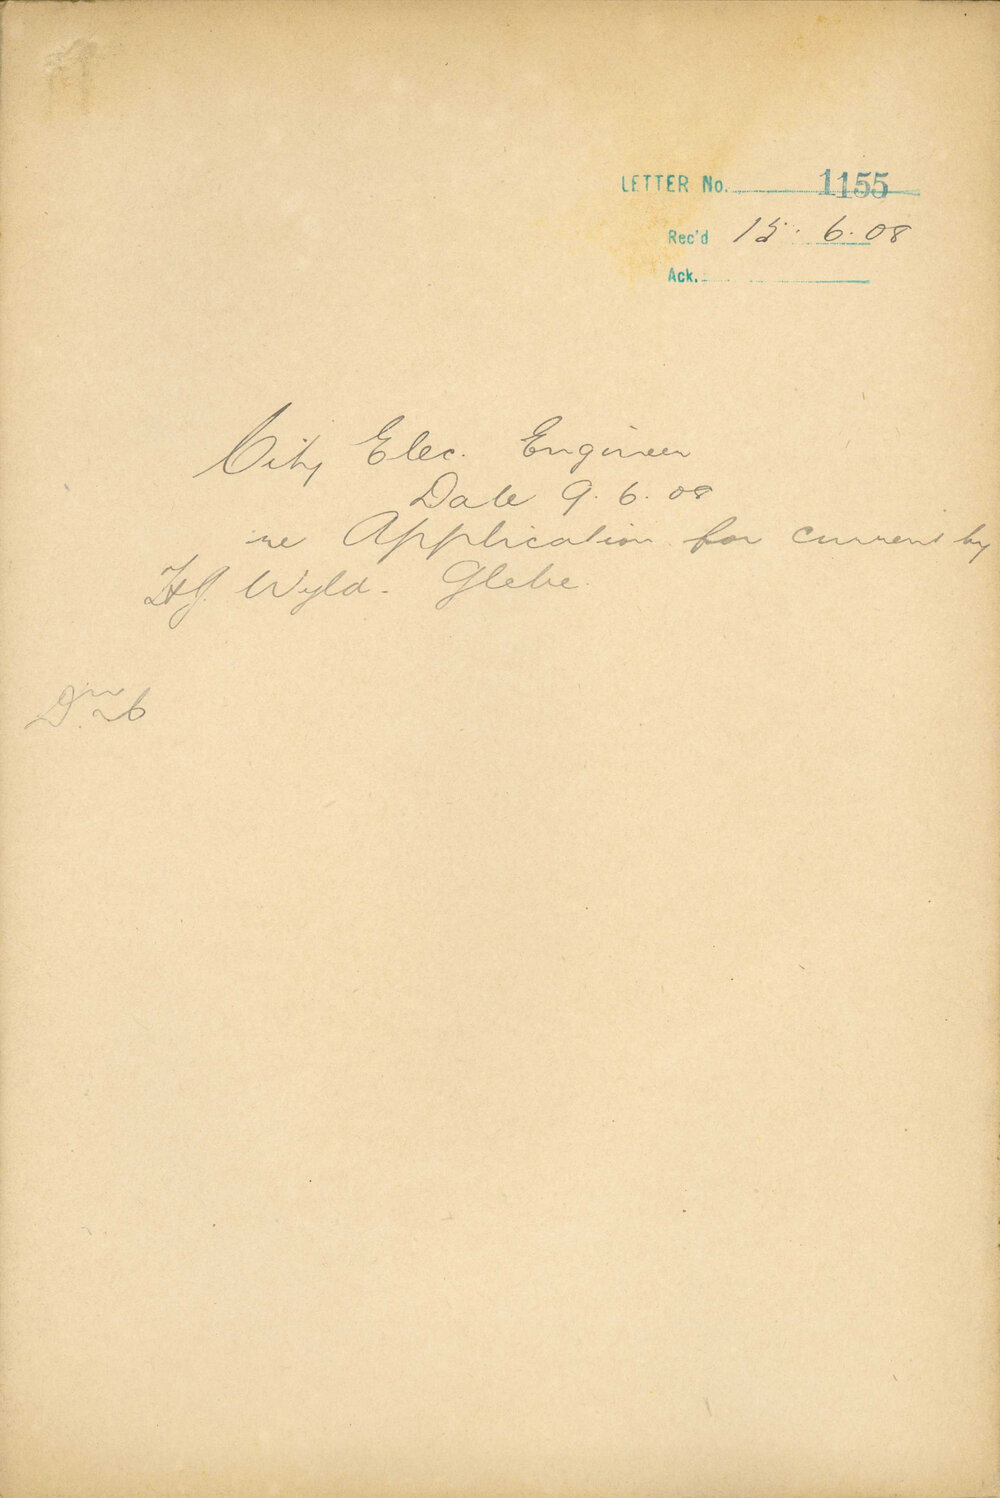 LETTER No. 1155
Rec'd 15. 6. 08
Ack.
City Elec. Engineer
Date 9. 6. 08
re Application for current by
H.J. Wyld. Glebe.